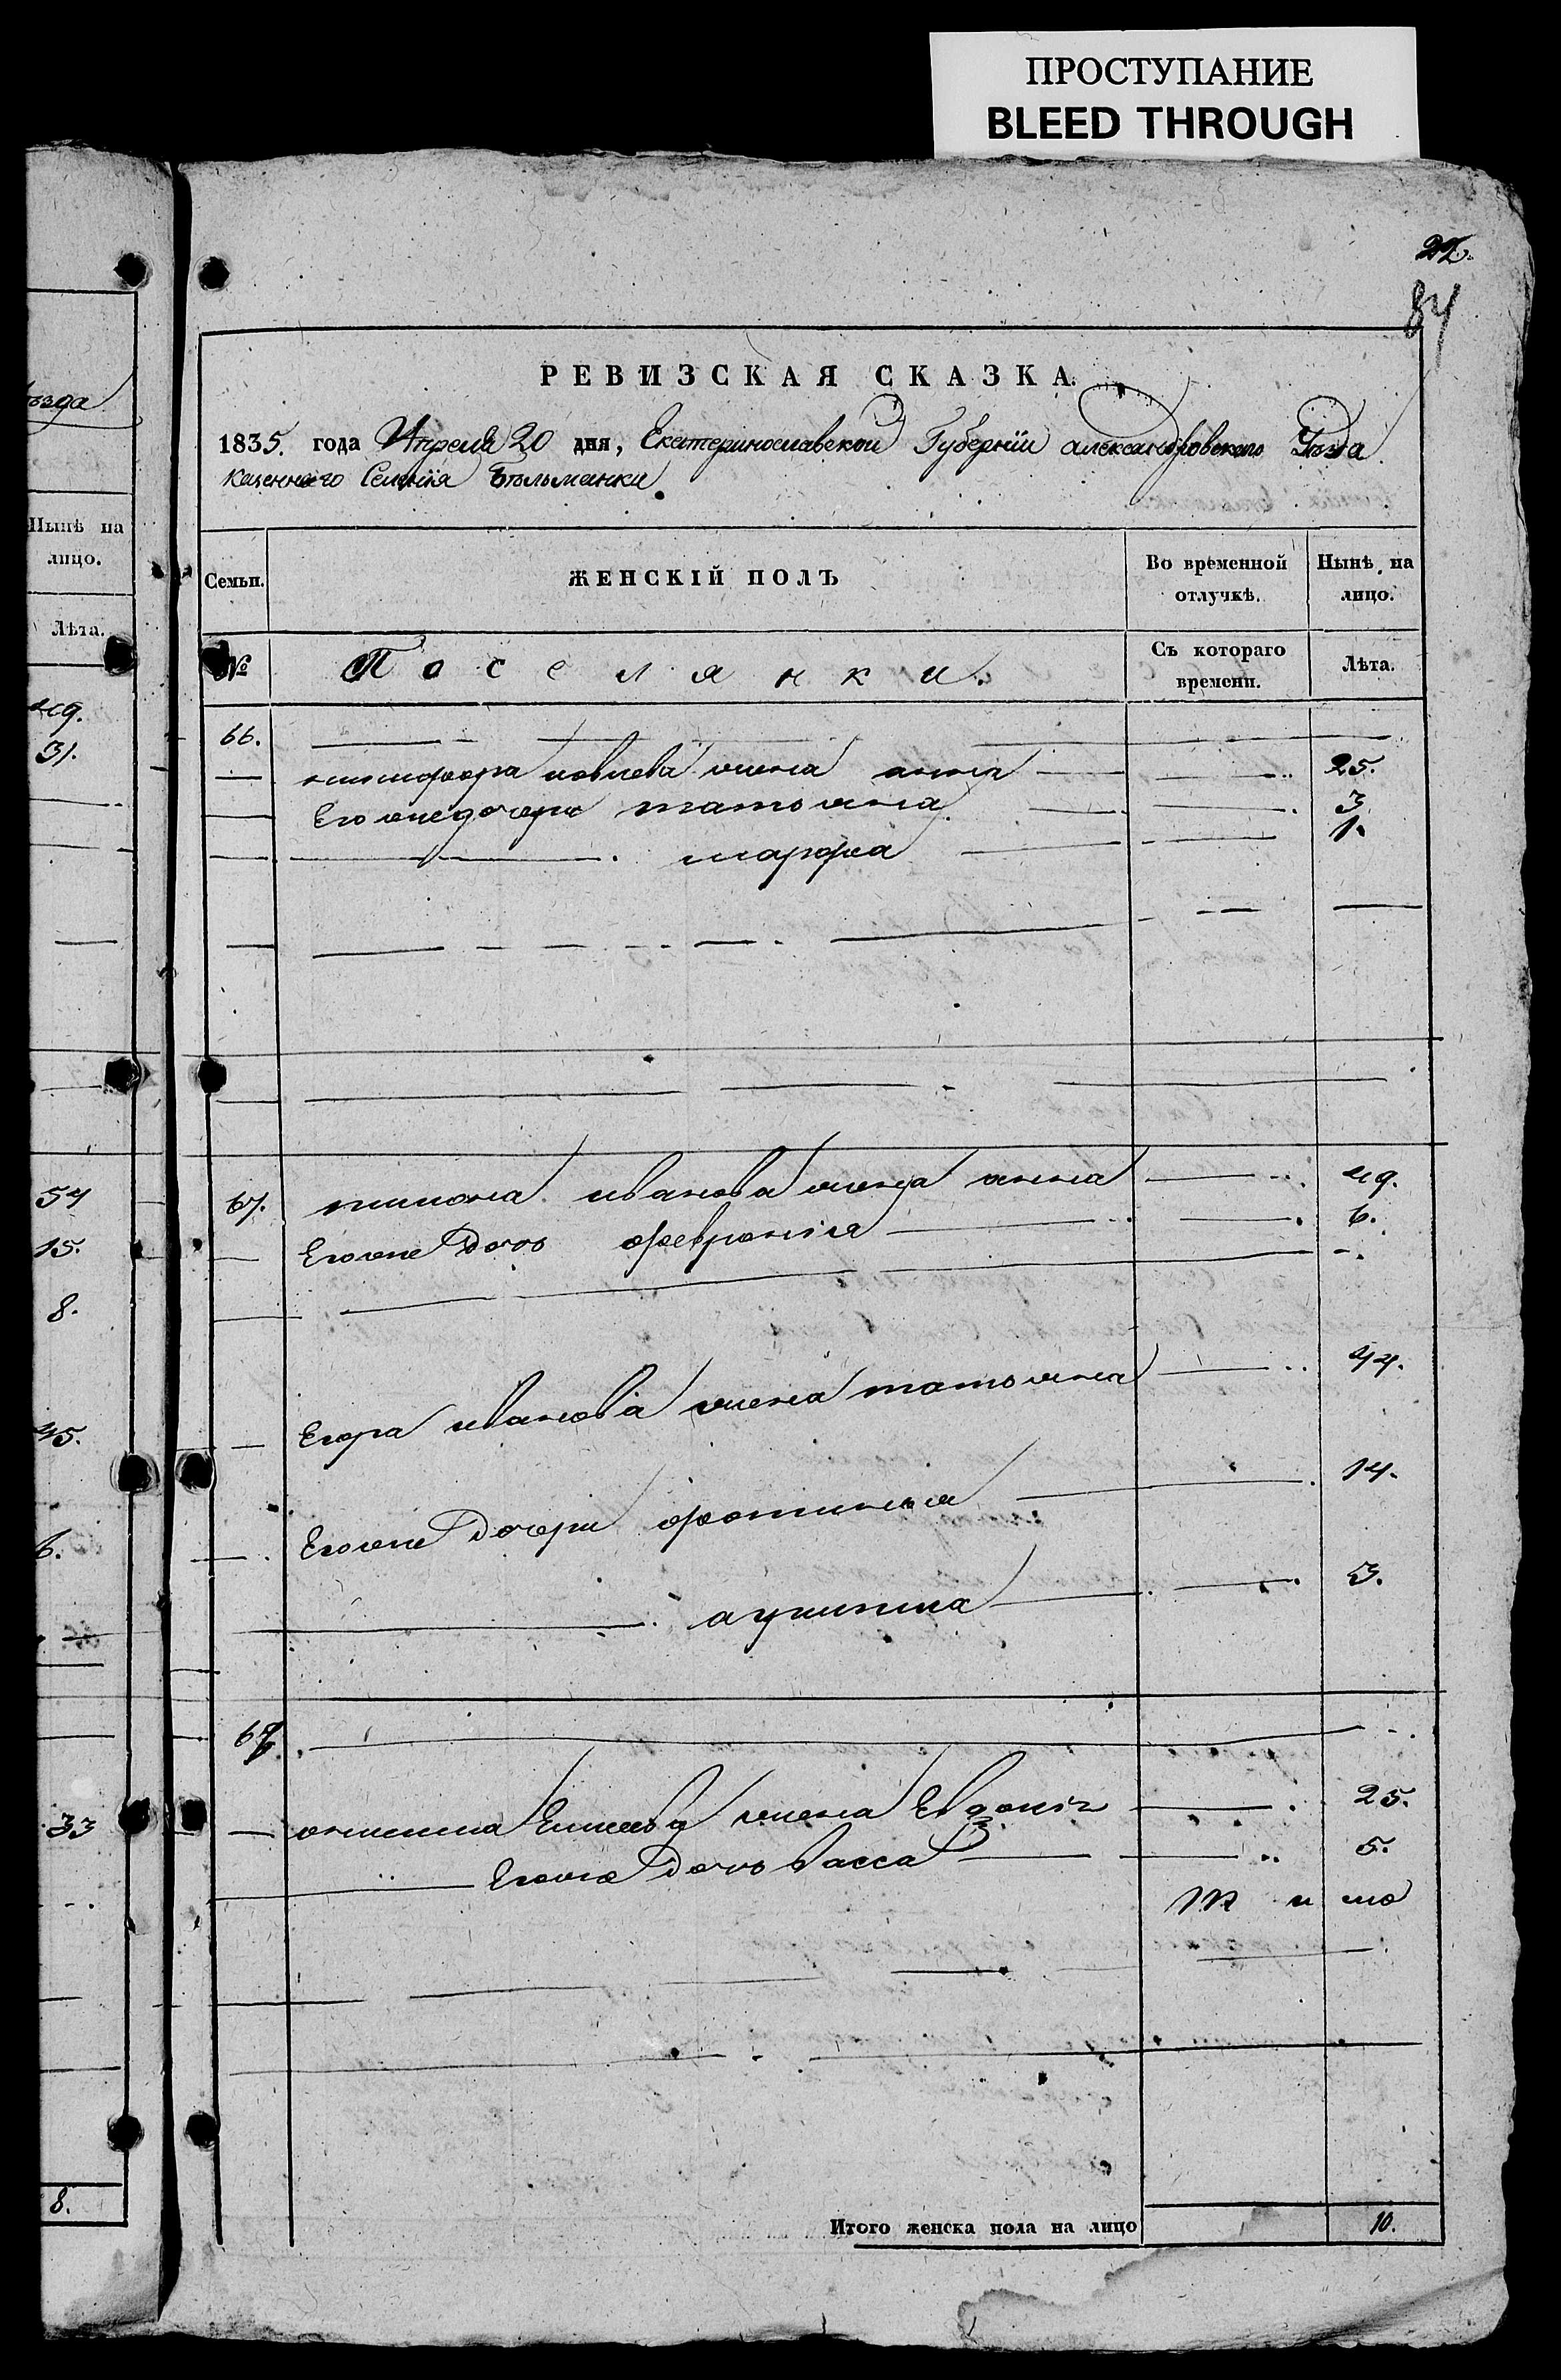 ПРОСТУПАНИЕ
BLEED THROUGH
84
РЕВИЗСКАЯ СКАЗКА.
1835. года Апреля 20 дня, Екатеринославской Губернїи александровского Уѣзда
казенного Селенїя Бѣльманки
Семьи. ЖЕНСКІЙ ПОЛЪ Во временной отлучкѣ. Нынѣ на лицо.
№ Поселянки. Съ котораго времени. Лѣта.
66.
никифора жена анна 25.
Его же дочери татояна 3
марфа 1.
67. тимона иванова жена анна 49.
Его же Дочь февронїя 6.
Егора иванова жена татояна 44.
Его же Дочери фотинья 14.
акулина 3.
жена Евдокїя 25.
Его же Дочь васса 5.
Итого женска пола на лицо 10.
ѣзда
Нынѣ на
лицо.
Лѣта.
49.
31.
54
15.
8.
45.
6.
33
8.